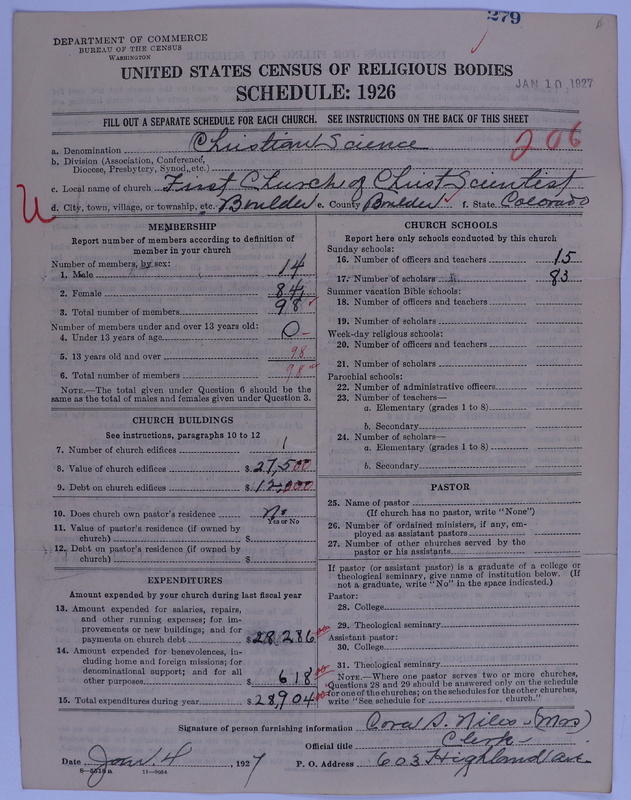 279
DEPARTMENT OF COMMERCE
BUREAU OF THE CENSUS
WASHINGTON
UNITED STATES CENSUS OF RELIGIOUS BODIES
SCHEDULE: 1926
JAN 10 1927
FILL OUT A SEPARATE SCHEDULE FOR EACH CHURCH. SEE INSTRUCTIONS ON THE BACK OF THIS SHEET
a. Denomination Christian Science
206
b. Division (Association, Conference,
Diocese, Presbytery, Synod, etc.)
c. Local name of church First Church of Christ Scientist
U
d. City, town, village, or township, etc. Boulder e. County Boulder f. State Colorado
MEMBERSHIP
Report number of members according to definition of
member in your church
Number of members, by sex:
1. Male 14
2. Female 84
3. Total number of members 98
Number of members under and over 13 years old:
4. Under 13 years of age 0
5. 13 years old and over 98
6. Total number of members 98
NOTE.—The total given under Question 6 should be the
same as the total of males and females given under Question 3.
CHURCH BUILDINGS
See instructions, paragraphs 10 to 12
7. Number of church edifices 1
8. Value of church edifices $27,500
9. Debt on church edifices $12,000
10. Does church own pastor's residence No
Yes or No
11. Value of pastor's residence (if owned by
church) $
12. Debt on pastor's residence (if owned by
church) $
EXPENDITURES
Amount expended by your church during last fiscal year
13. Amount expended for salaries, repairs,
and other running expenses; for im-
provements or new buildings; and for
payments on church debt $28,286 00
14. Amount expended for benevolences, in-
cluding home and foreign missions; for
denominational support; and for all
other purposes $618 00
15. Total expenditures during year $28,904 00
CHURCH SCHOOLS
Report here only schools conducted by this church
Sunday schools:
16. Number of officers and teachers 15
17. Number of scholars 83
Summer vacation Bible schools:
18. Number of officers and teachers
19. Number of scholars
Week-day religious schools:
20. Number of officers and teachers
21. Number of scholars
Parochial schools:
22. Number of administrative officers
23. Number of teachers—
a. Elementary (grades 1 to 8)
b. Secondary
24. Number of scholars—
a. Elementary (grades 1 to 8)
b. Secondary
PASTOR
25. Name of pastor
(If church has no pastor, write "None")
26. Number of ordained ministers, if any, em-
ployed as assistant pastors
27. Number of other churches served by the
pastor or his assistants
If pastor (or assistant pastor) is a graduate of a college or
theological seminary, give name of institution below. (If
not a graduate, write "No" in the space indicated.)
Pastor:
28. College
29. Theological seminary
Assistant pastor:
30. College
31. Theological seminary
NOTE.—Where one pastor serves two or more churches,
Questions 28 and 29 should be answered only on the schedule
for one of the churches; on the schedules for the other churches,
write "See schedule for church."
Signature of person furnishing information Cora S. Niles (Mrs)
Official title Clerk
Date Jan. 4, 1927 P. O. Address 603 Highland Ave.
8—5518a 11—9054